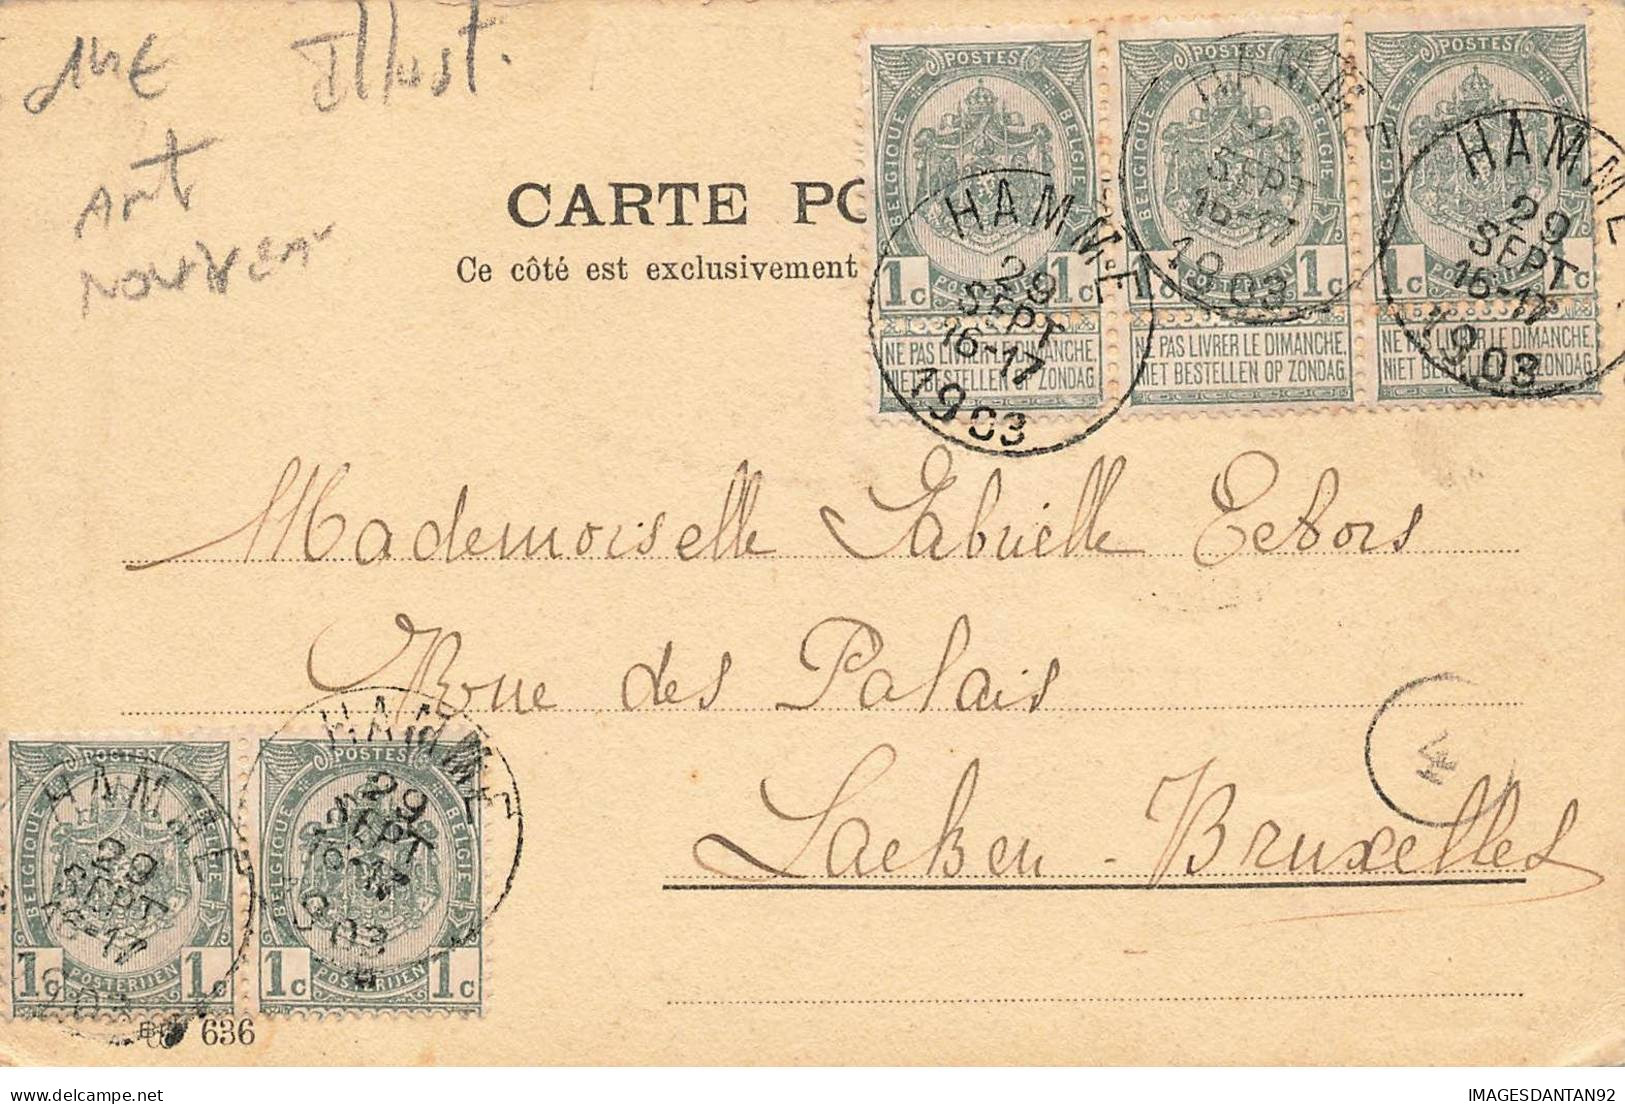 14€ Illust.
Art
Nouveau
CARTE PO
Ce côté est exclusivement
POSTES POSTES POSTES
BELGIQUE BELGIE BELGIQUE BELGIE
1c 1c 1c 1c 1c 1c
NE PAS LIVRER LE DIMANCHE, NE PAS LIVRER LE DIMANCHE, NE PAS LIVRER LE DIMANCHE,
NIET BESTELLEN OP ZONDAG NIET BESTELLEN OP ZONDAG NIET BESTELLEN OP ZONDAG
HAMME
29
SEPT
16-17
1903
HAMME
SEPT
16-17
1903
HAMME
29
SEPT
16-17
1903
Mademoiselle Gabrielle
Rue des Palais
Laeken - Bruxelles
4
POSTES POSTES
BELGIQUE BELGIE BELGIQUE BELGIE
HAMME
29
SEPT
16-17
HAMME
29
SEPT
1903
1c POSTERIJEN 1c 1c POSTERIJEN 1c
636
IMAGESDANTAN92